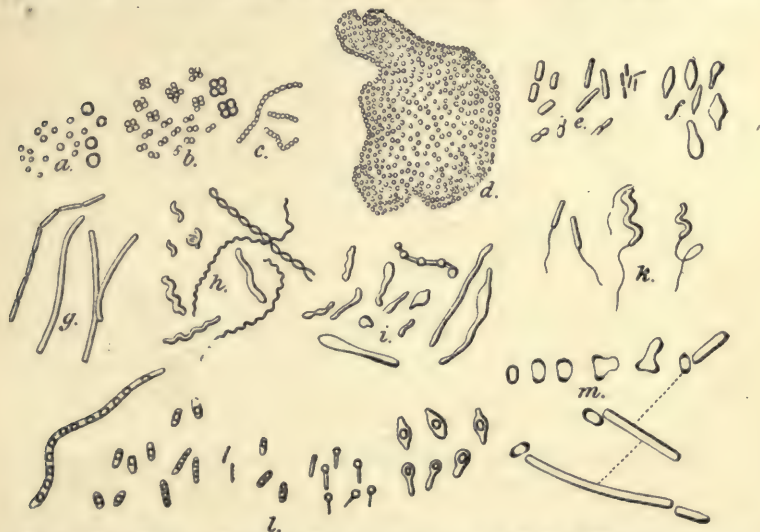 a.
b.
c.
d.
e.
f.
g.
h.
i.
k.
l.
m.